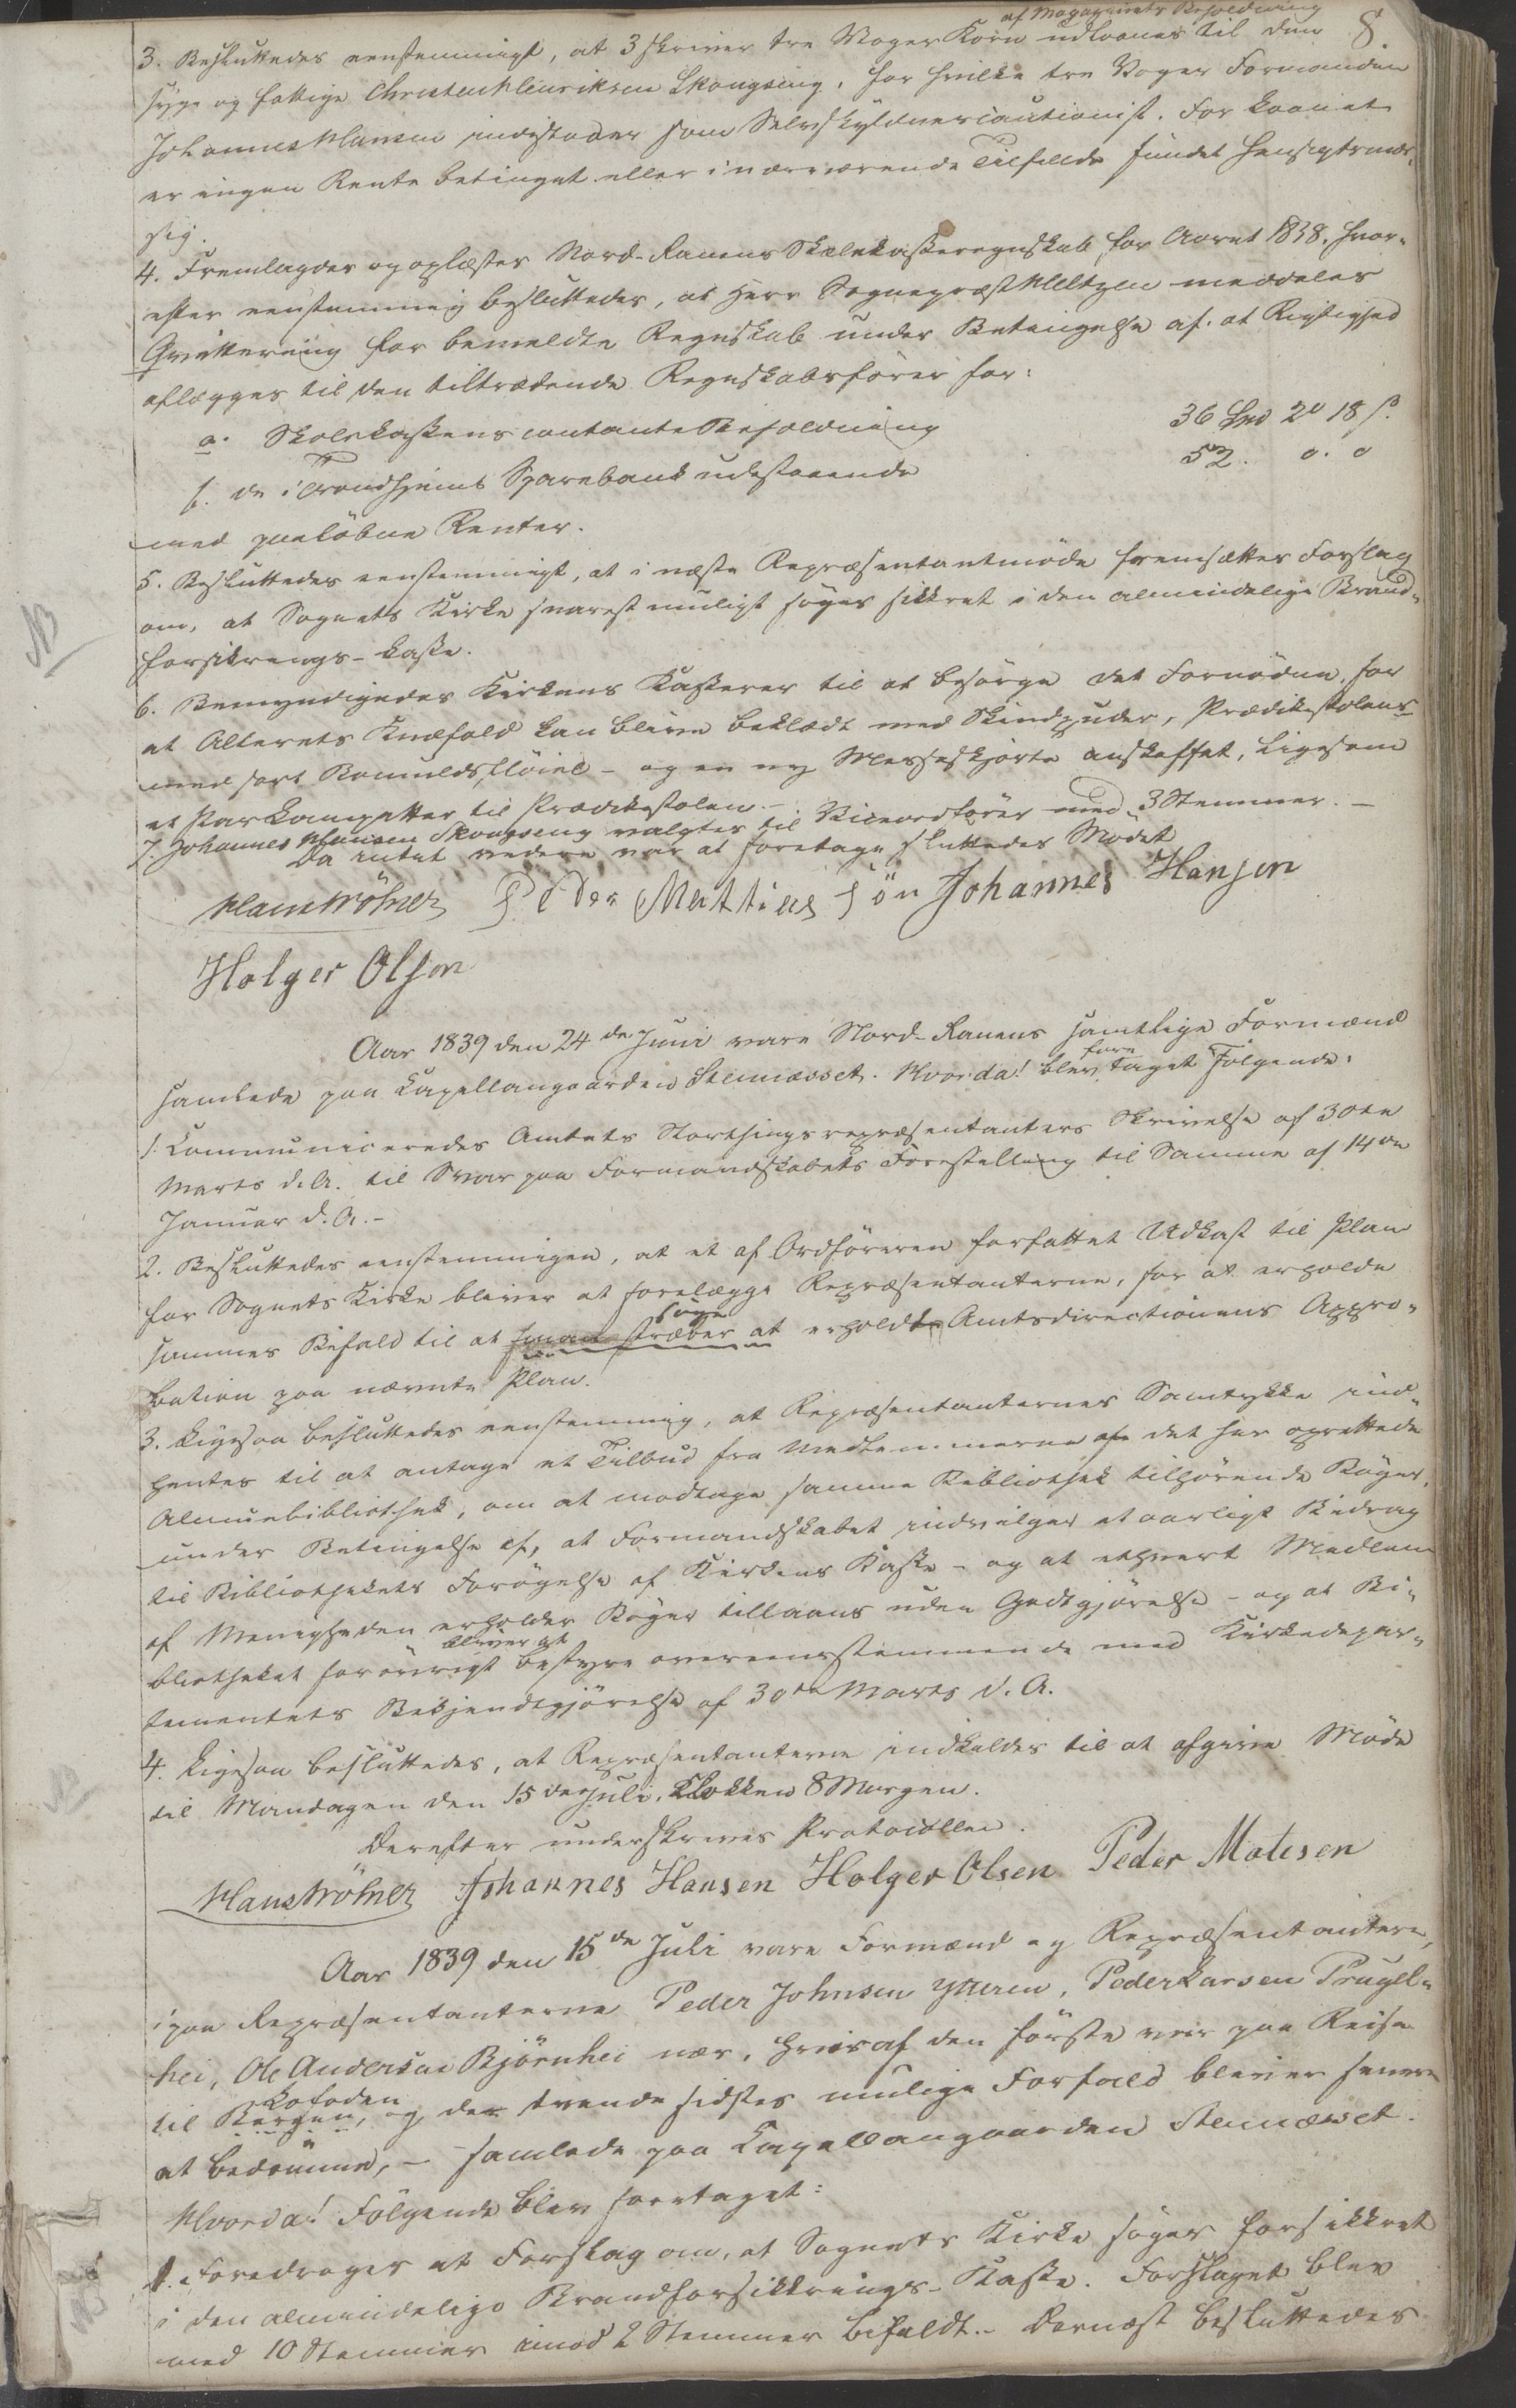 8.
af Magazinets Beholdning
3. Besluttedes eenstemmigt, at 3 skriver tre Voger Korn udlaanes til den
syge og fattige Christen Henriksen Skougseng, for hvilke tre Voger Formanden
Johannes Hansen indestaaer som Selvskyldnercautionist. For Laanet
er ingen Rente betinget eller i nærværende Tilfælde fundet hensigtsmæs-
sig.
4. Fremlagdes og oplæstes Nord-Ranens Skolekasseregnskab for Aaret 1838, hvor-
efter eenstemmig besluttedes, at Herr Sognepræst Heltzen meddeles
Qvittering for bemeldte Regnskab under Betingelse af, at Rigtighed
aflægges til den tiltrædende Regnskabsfører for:
a. Skolekassens contante Beholdning 36 Spd 2 ₰ 18 ß.
b. de i Trondhjems Sparebank udestaaende 52. 0. 0
med paaløbne Renter.
5. Besluttedes eenstemmigt, at i næste Repræsentantmøde fremsættes Forslag
om, at Sognets Kirke snarest muligt søges sikkret i den almindelige Brand-
forsikrings-Casse.
NB
6. Bemyndigedes Kirkens Kasserer til at besørge det Fornødne, for
at Alterets Knæfald kan blive beklædt med Skindpuder, Prædikestolens
med sort Bomuldsfløiel – og en ny Messeskjorte anskaffet, ligesom
et Par Lampetter til Prædikestolen. –
7. Johannes Hansen Skougseng valgtes til Viceordfører med 3 Stemmer. –
Da intet videre var at foretage sluttedes Mødet
Hans Wölner Peder Mattias Søn Johannes Hansen
Holger Olsen
Aar 1839 den 24de Juni vare Nord-Ranens samtlige Formænd
samlede paa Capellangaarden Stennæsset. Hvorda! blev fore taget Følgende:
1. Communiceredes Amtets Storthingsrepræsentanters Skrivelse af 30te
Marts d. A. til Svar paa Formandskabets Forestilling til Samme af 14de
Januar d. A. –
2. Besluttedes eenstemmigen, at et af Ordføreren forfattet Udkast til Plan
for Sognets Kirke bliver at forelægge Repræsentanterne, for at erholde
sammes Bifald til at man stræber søge at erholdt Amtsdirectionens Appro-
bation paa nævnte Plan.
3. Ligesaa besluttedes eenstemmig, at Repræsentanternes Samtykke ind-
hentes til at antage et Tilbud fra Medlemmerne af det her oprettede
Almuebibliothek, om at modtage samme Bibliothek tilhørende Bøger,
under Betingelse af, at Formandskabet indvilger et aarligt Bidrag
til Bibliothekets Forøgelse af Kirkens Kasse – og at ethvert Medlem
af Menigheden erholder Bøger tillaans uden Godtgjørelse – og at Bi-
bliotheket forøvrigt bliver at bestyre overeensstemmende med Kirkedepar-
tementets Bekjendtgjørelse af 30te Marts d. A.
4. Ligesaa besluttedes, at Repræsentanterne indkaldes til at afgive Møde
til Mandagen den 15de Juli, Klokken 8 Morgen.
NB
Derefter underskreves Protocollen.
Hans Wölner Johannes Hansen Holger Olsen Peder Matisen
Aar 1839 den 15de Juli vare Formænd og Repræsentantere,
paa Repræsentanterne Peder Johnsen Ytteren, Peder Larsen Prugel-
hei, Ole Andersen Bjørnhei nær, hvoraf den første var paa Reise
til Bergen Lofoden, og de tvende sidstes mulige Forfald bliver senere
at bedømme, – samlede paa Capellangaarden Stennæsset.
Hvorda! Følgende blev foretaget:
1. Foredroges et Forslag om, at Sognets Kirke søges forsikkret
i den almindelige Brandforsikkrings-Kasse. Forslaget blev
NB
med 10 Stemmer imod 2 Stemmer bifaldt. – Dernæst besluttedes